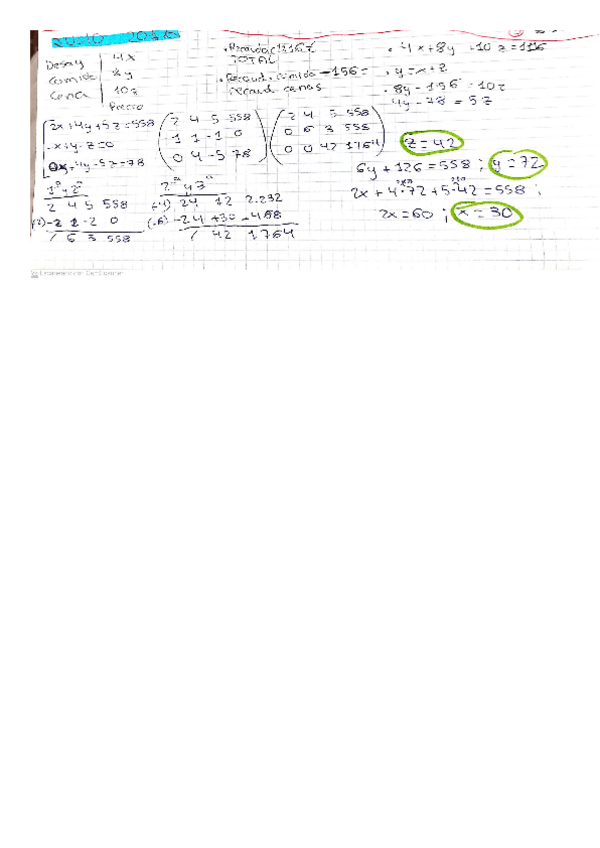 JUNIO 2018
Desay | 4x
Comida | 8y
Cena | 10z
Precio
TOTAL
• Recaud. comida -156 =
recaud. cenas
• 4x+8y+10z=1116
• y=x+z
• 8y-156=10z
4y-78=5z
2x+4y+5z=558
-x+y-z=0
0x+4y-5z=78
2 4 5 558
-1 1 -1 0
0 4 -5 78
2 4 5 558
0 6 3 558
0 0 42 1764
z=42
6y+126=558; y=72
2x+4·72+5·42=558;
2x=60; x=30
1ª y 2ª
2 4 5 558
(2) -2 2 -2 0
/ 6 3 558
2ª y 3ª
(4) 24 12 2.232
(-6) -24 +30 -468
/ 42 1764
Escaneado con CamScanner